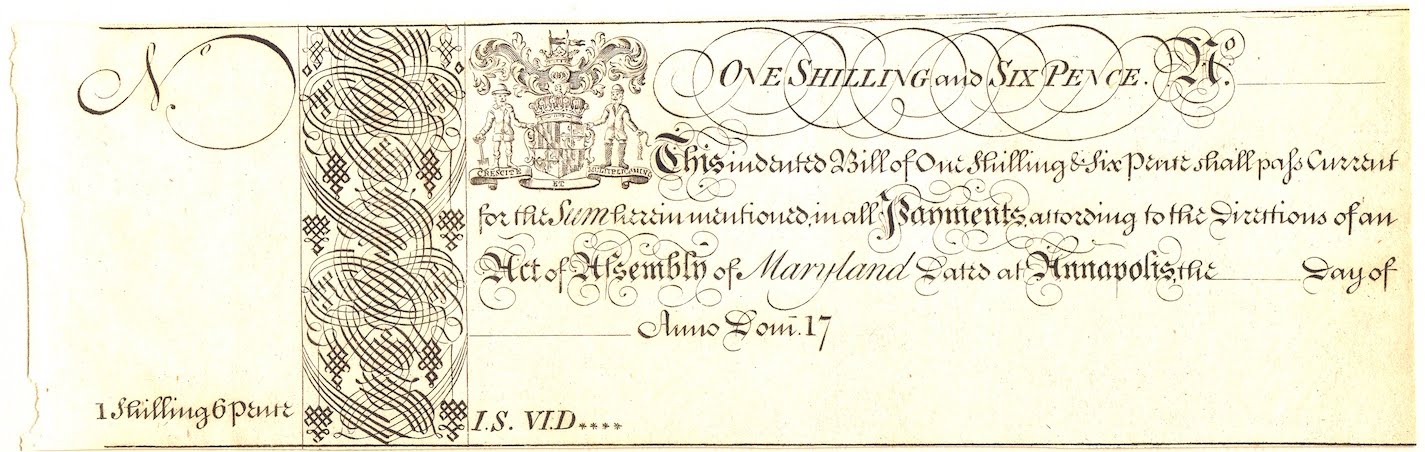 No
ONE SHILLING and SIX PENCE. No.
CRESCITE ET MULTIPLICAMINI
This indented Bill of One Shilling & Six Pence shall pass Current
for the Sum herein mentioned, in all Payments, according to the Directions of an
Act of Assembly of Maryland Dated at Annapolis, the Day of
Anno Dom. 17
1 Shilling 6 Pence
I.S. VI.D****